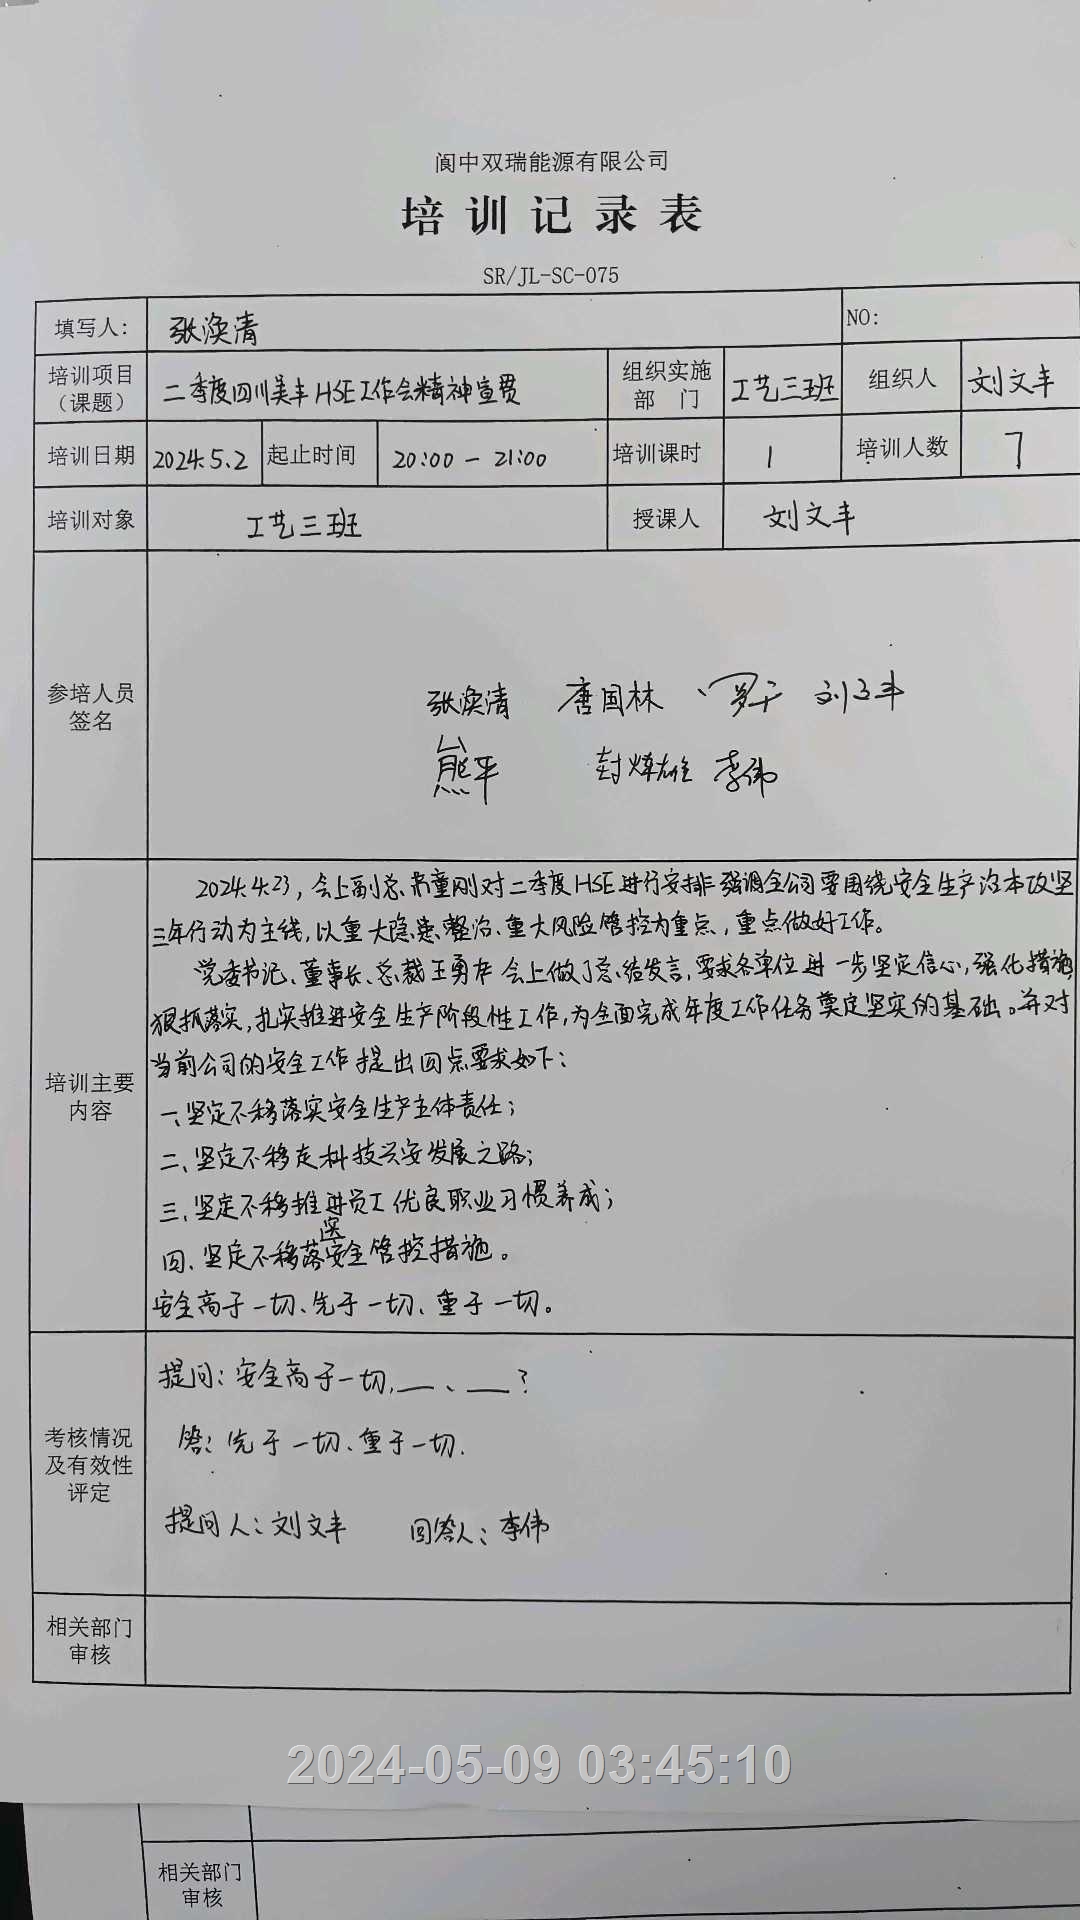 阆中双瑞能源有限公司
培训记录表
SR/JL-SC-075
填写人: 张涣清 NO:
培训项目（课题） 二季度四川美丰HSE工作会精神宣贯 组织实施部门 工艺三班 组织人 刘文丰
培训日期 2024.5.2 起止时间 20:00 - 21:00 培训课时 1 培训人数 7
培训对象 工艺三班 授课人 刘文丰
参培人员签名
张涣清 唐国林 罗干 刘文丰
熊平 封焯雄 李伟
培训主要内容
2024.4.23，会上副总肖童刚对二季度HSE进行安排强调全公司要围绕安全生产治本攻坚
三年行动为主线，以重大隐患整治、重大风险管控为重点，重点做好工作。
党委书记、董事长、总裁王勇 会上做了总结发言，要求各单位进一步坚定信心，强化措施
狠抓落实，扎实推进安全生产阶段性工作，为全面完成年度工作任务奠定坚实的基础。并对
当前公司的安全工作提出四点要求如下：
一、坚定不移落实安全生产主体责任；
二、坚定不移走科技兴安发展之路；
三、坚定不移推进员工优良职业习惯养成；
四、坚定不移落实安全管控措施。
安全高于一切、先于一切、重于一切。
考核情况及有效性评定
提问：安全高于一切，__、__？
答：先于一切、重于一切.
提问人：刘文丰 回答人：李伟
相关部门审核
2024-05-09 03:45:10
相关部门审核